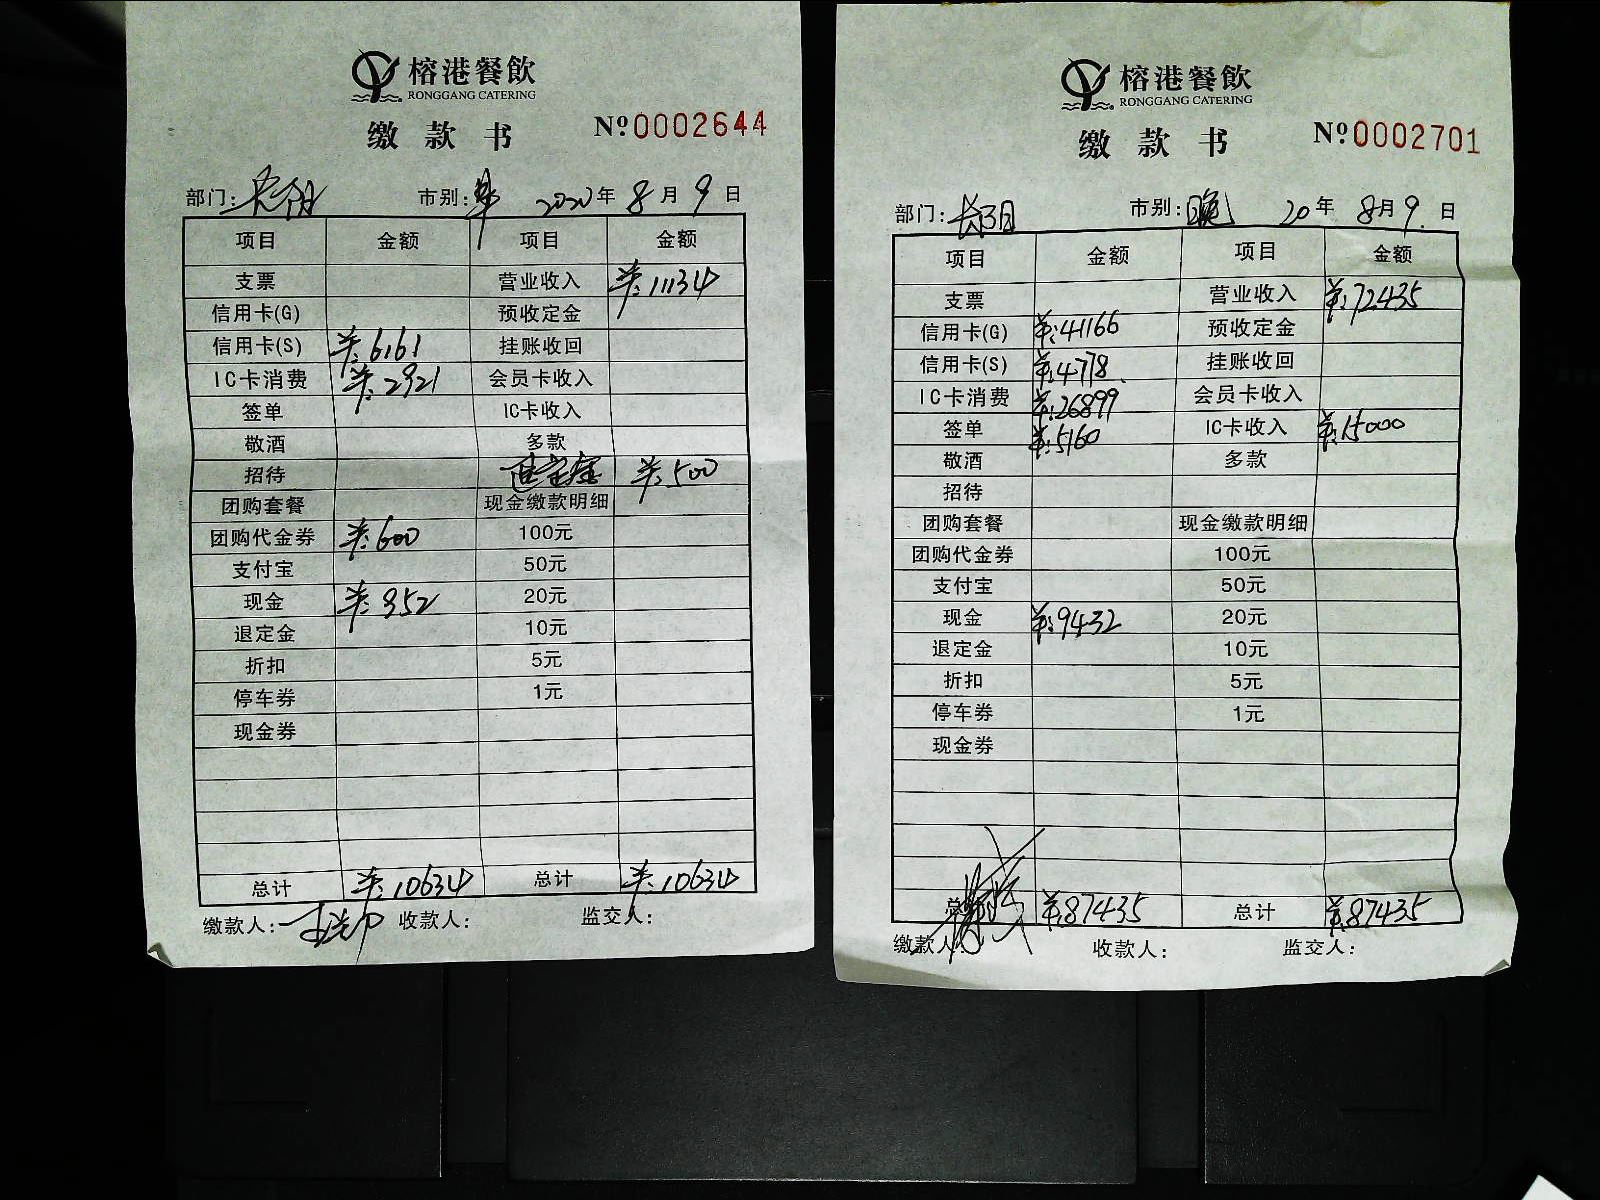 榕港餐飲
RONGGANG CATERING
缴款书 №0002644
部门: 市别:早 2020年8月9日
项目 金额 项目 金额
支票 营业收入 ¥:11134
信用卡(G) 预收定金
信用卡(S) ¥:6161 挂账收回
IC卡消费 ¥:2921 会员卡收入
签单 IC卡收入
敬酒 多款
招待 退定金 ¥:500
团购套餐 现金缴款明细
团购代金券 ¥:600 100元
支付宝 50元
现金 ¥:952 20元
退定金 10元
折扣 5元
停车券 1元
现金券
总计 ¥:10634 总计 ¥:10634
缴款人: 收款人: 监交人:
榕港餐飲
RONGGANG CATERING
缴款书 №0002701
部门: 市别:晚 20年8月9日
项目 金额 项目 金额
支票 营业收入 ¥:72435
信用卡(G) ¥:41166 预收定金
信用卡(S) ¥:4778 挂账收回
IC卡消费 ¥:26899 会员卡收入
签单 ¥:5160 IC卡收入 ¥:15000
敬酒 多款
招待
团购套餐 现金缴款明细
团购代金券 100元
支付宝 50元
现金 ¥:9432 20元
退定金 10元
折扣 5元
停车券 1元
现金券
总计 ¥:87435 总计 ¥:87435
缴款人: 收款人: 监交人: